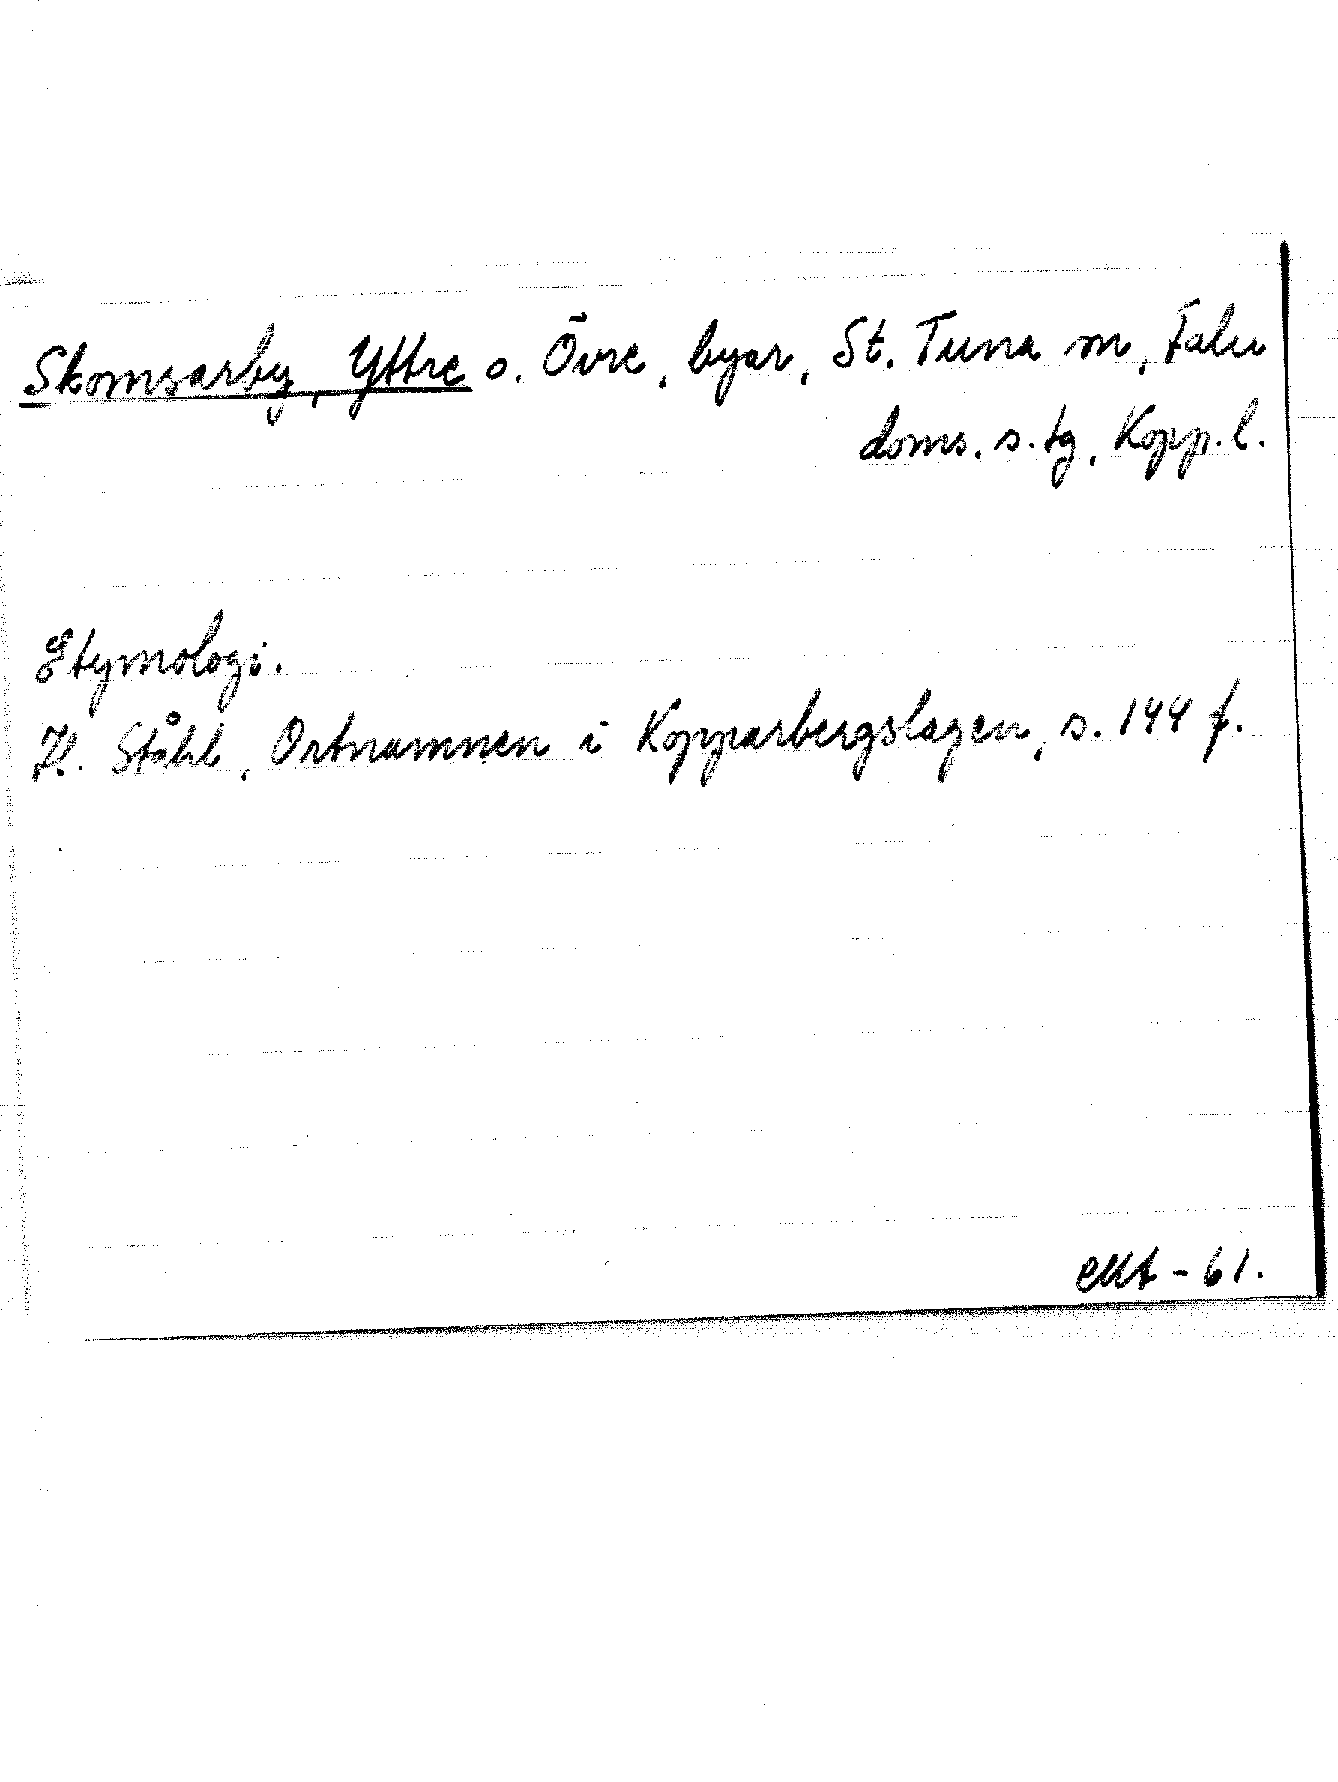 Skomsarby, Yttre o. Övre, byar, St. Tuna sn, Falu
doms. s. tg, Kopp. l.
Etymologi.
H. Ståhl, Ortnamnen i Kopparbergslagen, s. 144 f.
-61.